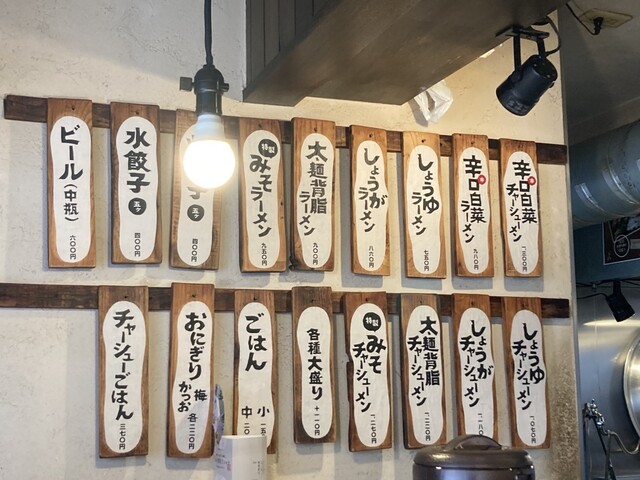 辛口白菜
チャーシューメン
一三〇〇円
辛口白菜
ラーメン
九八〇円
しょうゆ
ラーメン
七五〇円
しょうが
ラーメン
八六〇円
太麺背脂
ラーメン
九〇〇円
特製
みそラーメン
九五〇円
子
五ヶ
四〇〇円
水餃子
五ヶ
四〇〇円
ビール(中瓶)
六〇〇円
しょうゆ
チャーシューメン
一、〇七〇円
しょうが
チャーシューメン
太麺背脂
チャーシューメン
一二二〇円
特製
みそ
チャーシューメン
一二七〇円
各種大盛り
+一一〇円
ごはん
小 一五
中 二〇
おにぎり
梅
かつお
各
チャーシューごはん
三七〇円